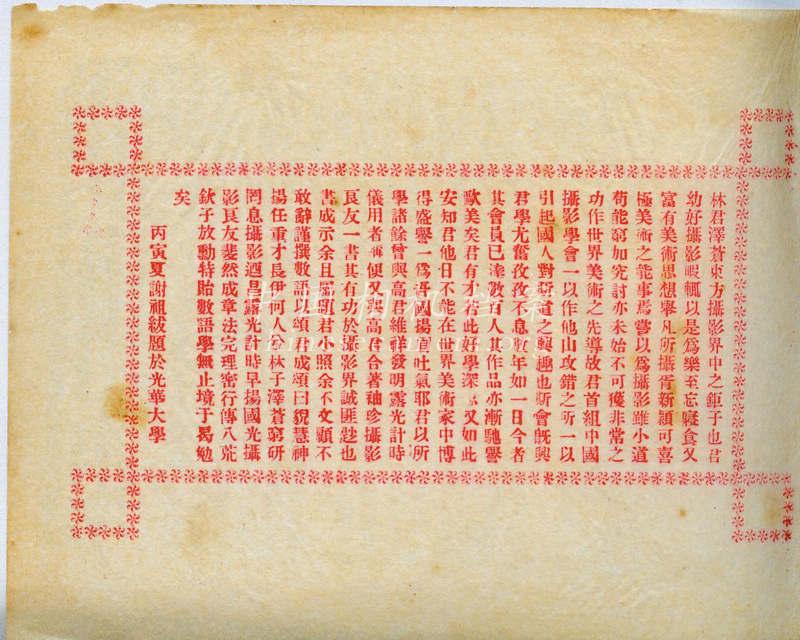 林君澤蒼東方攝影界中之鉅子也君
幼好攝影暇輒以是爲樂至忘寢食又
富有美術思想舉凡所攝皆新穎可喜
極美術之能事焉嘗以爲攝影雖小道
苟能窮加究討亦未始不可獲非常之
功作世界美術之先導故君首組中國
攝影學會一以作他山攻錯之所一以
引起國人對斯道之興趣也斯會旣興
君學尤奮孜孜不息數年如一日今者
其會員已達數百人其作品亦漸馳譽
歐美矣君有才若此好學深 又如此
安知君他日不能在世界美術家中博
得盛譽一爲吾國揚眉吐氣耶君以所
學諸餘曾與高君維祥發明露光計時
儀用者稱便又與高君合著袖珍攝影
良友一書其有功於攝影界誠匪尠也
書成示余且屬題君小照余不文顧不
敢辭謹撰數語以頌君成頌曰貌慧神
揚任重才長伊何人兮林子澤蒼窮研
罔息攝影迺昌露光計時早揚國光攝
影良友斐然成章法完理密行傳八荒
欽子放勳特貽數語學無止境于曷勉
矣
丙寅夏謝祖紱題於光華大學
中国相机档案